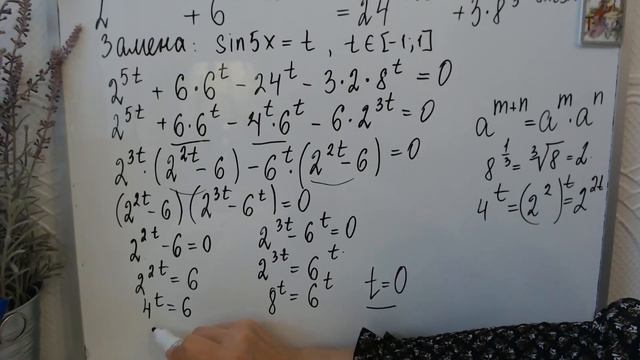 2 + 6 = 24 + 3·8
Замена: sin5x = t , t ∈ [-1;1]
2^{5t} + 6·6^t - 24^t - 3·2·8^t = 0
2^{5t} + 6·6^t - 4^t·6^t - 6·2^{3t} = 0
2^{3t}·(2^{2t} - 6) - 6^t·(2^{2t} - 6) = 0
(2^{2t} - 6)(2^{3t} - 6^t) = 0
2^{2t} - 6 = 0
2^{2t} = 6
4^t = 6
2^{3t} - 6^t = 0
2^{3t} = 6^t
8^t = 6^t
t = 0
a^{m+n} = a^m · a^n
8^{1/3} = ∛8 = 2
4^t = (2^2)^t = 2^{2t}